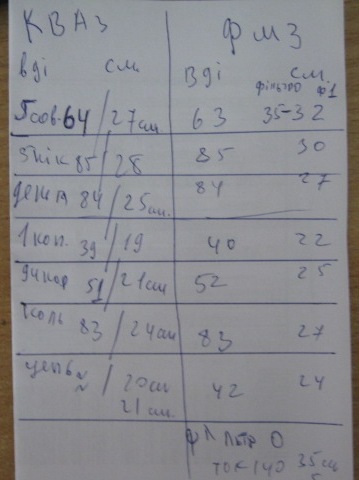 КВАЗ ФМЗ
вді см. вді см.
фільтро ф1
5 сов. 64 / 27 см. 63 35-32
5 нік 85 / 28 85 30
84 / 25 см. 84 27
1 коп. 39 / 19 40 22
51 / 21 см 52 25
коль 83 / 24 см 83 27
цепь 20 см 42 24
21 см.
0
ток 140 35 см